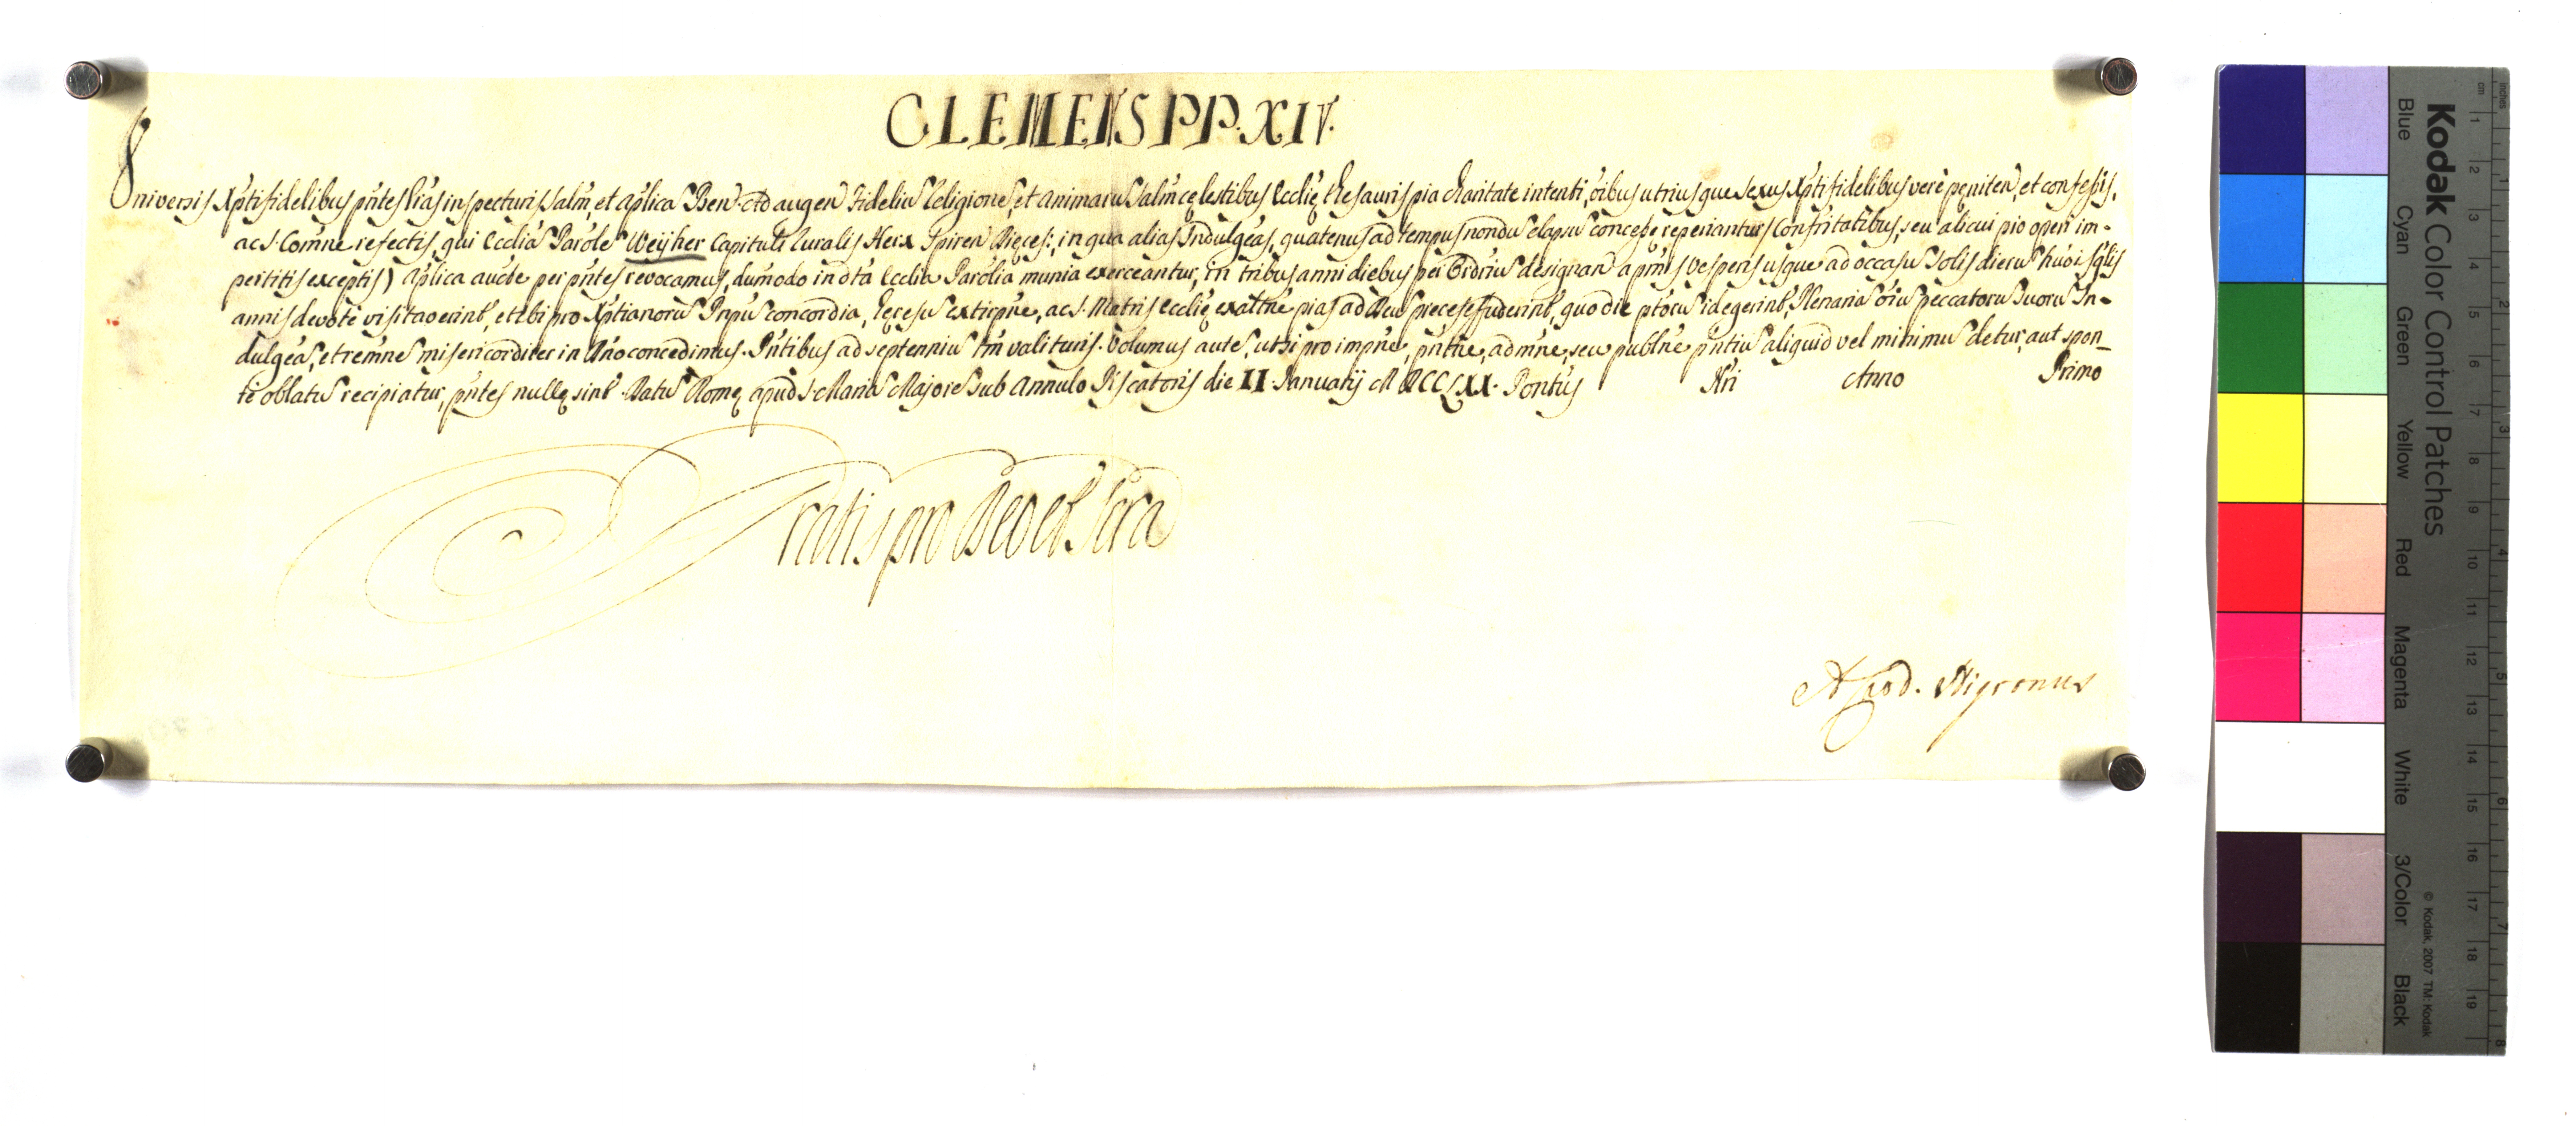 CLEMENS PP. XIV.
Universis Xpti fidelibus pntes lras inspecturis salm, et aplica Ben. Ad augen fideliu Religione, et animaru salm celestibus Ecclie thesauris pia charitate intenti, oibus utriusque sexus Xpti fidelibus vere peniten, et confessis,
ac S. Comne refectis, qui Eccliã Parole Weijher Capituli Ruralis Herx Spiren Dieces:, in qua alias Indulgeas, quatenus ad tempus nondu elapsu concesse reperiantur (Confritatibus, seu alicui pio operi im-
pertitis exceptis) aplica aucte per pntes revocamus, dumodo in dta Ecclia Parolia munia exerceantur, in tribus anni diebus per Ordriu designan a pmis Vesperis usque ad occasu Solis dieru huoi sglis
annis devote visitaverint, et ibi pro Xptianoru Pnpu concordia, heresu extirpne, ac S. Matris Ecclie exaltne pias ad Deu preces effuderint, quo die ptoru id egerint, Plenaria oiu peccatoru suoru In-
dulgea, et remne misericorditer in Dno concedimus. Pntibus ad septenniu tm valituris. Volumus aute, ut si pro impne, pntne, admne, seu publne pntiu aliquid vel minimu detur, aut spon-
te oblatu recipiatur, pntes nulle sint. Datu Rome apud S. Maria Majore sub Annulo Piscatoris die II Januarij MDCCLXX. Pontus Nri Anno Primo
Gratis pro Deo et Scra
Nigronus
Kodak Color Control Patches
Blue Cyan Green Yellow Red Magenta White 3/Color Black
© Kodak, 2007 TM: Kodak
cm 1 2 3 4 5 6 7 8 9 10 11 12 13 14 15 16 17 18 19
inches 1 2 3 4 5 6 7 8